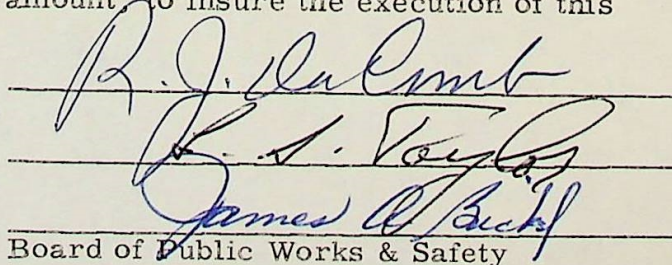 amount, to insure the execution of this
R. J. DuComb
R. S. Taylor
James A
Board of Public Works & Safety